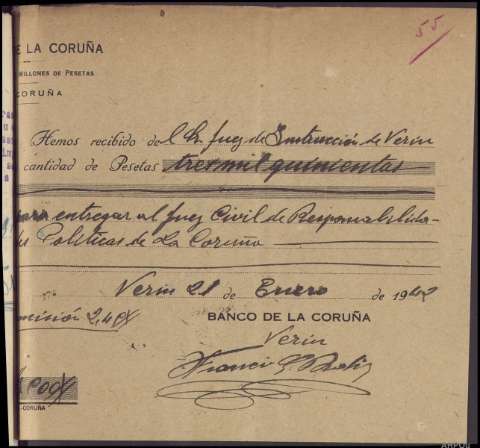 55.
DE LA CORUÑA
MILLONES DE PESETAS
CORUÑA
Hemos recibido del Sr. Juez de Instrucción de Verin
cantidad de Pesetas tres mil quinientas
para entregar al Juez Civil de Responsabilida-
des Políticas de La Coruña
Verin 21 de Enero de 1942
comisión 2,40
BANCO DE LA CORUÑA
Verin
CORUÑA